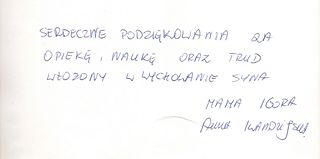 SERDECZNE PODZIĘKOWANIA ZA
OPIEKĘ, NAUKĘ ORAZ TRUD
WŁOŻONY W WYCHOWANIE SYNA
MAMA IGORA